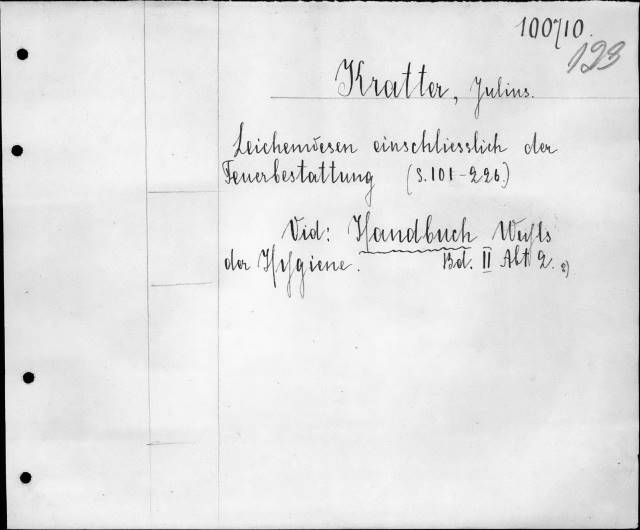 100710.
123
Kratter, Julius.
Leichenwesen einschliesslich der
Feuerbestattung (S. 101-226.)
Vid: Handbuch Weyls
der Hygiene. Bd. II Abt 2.